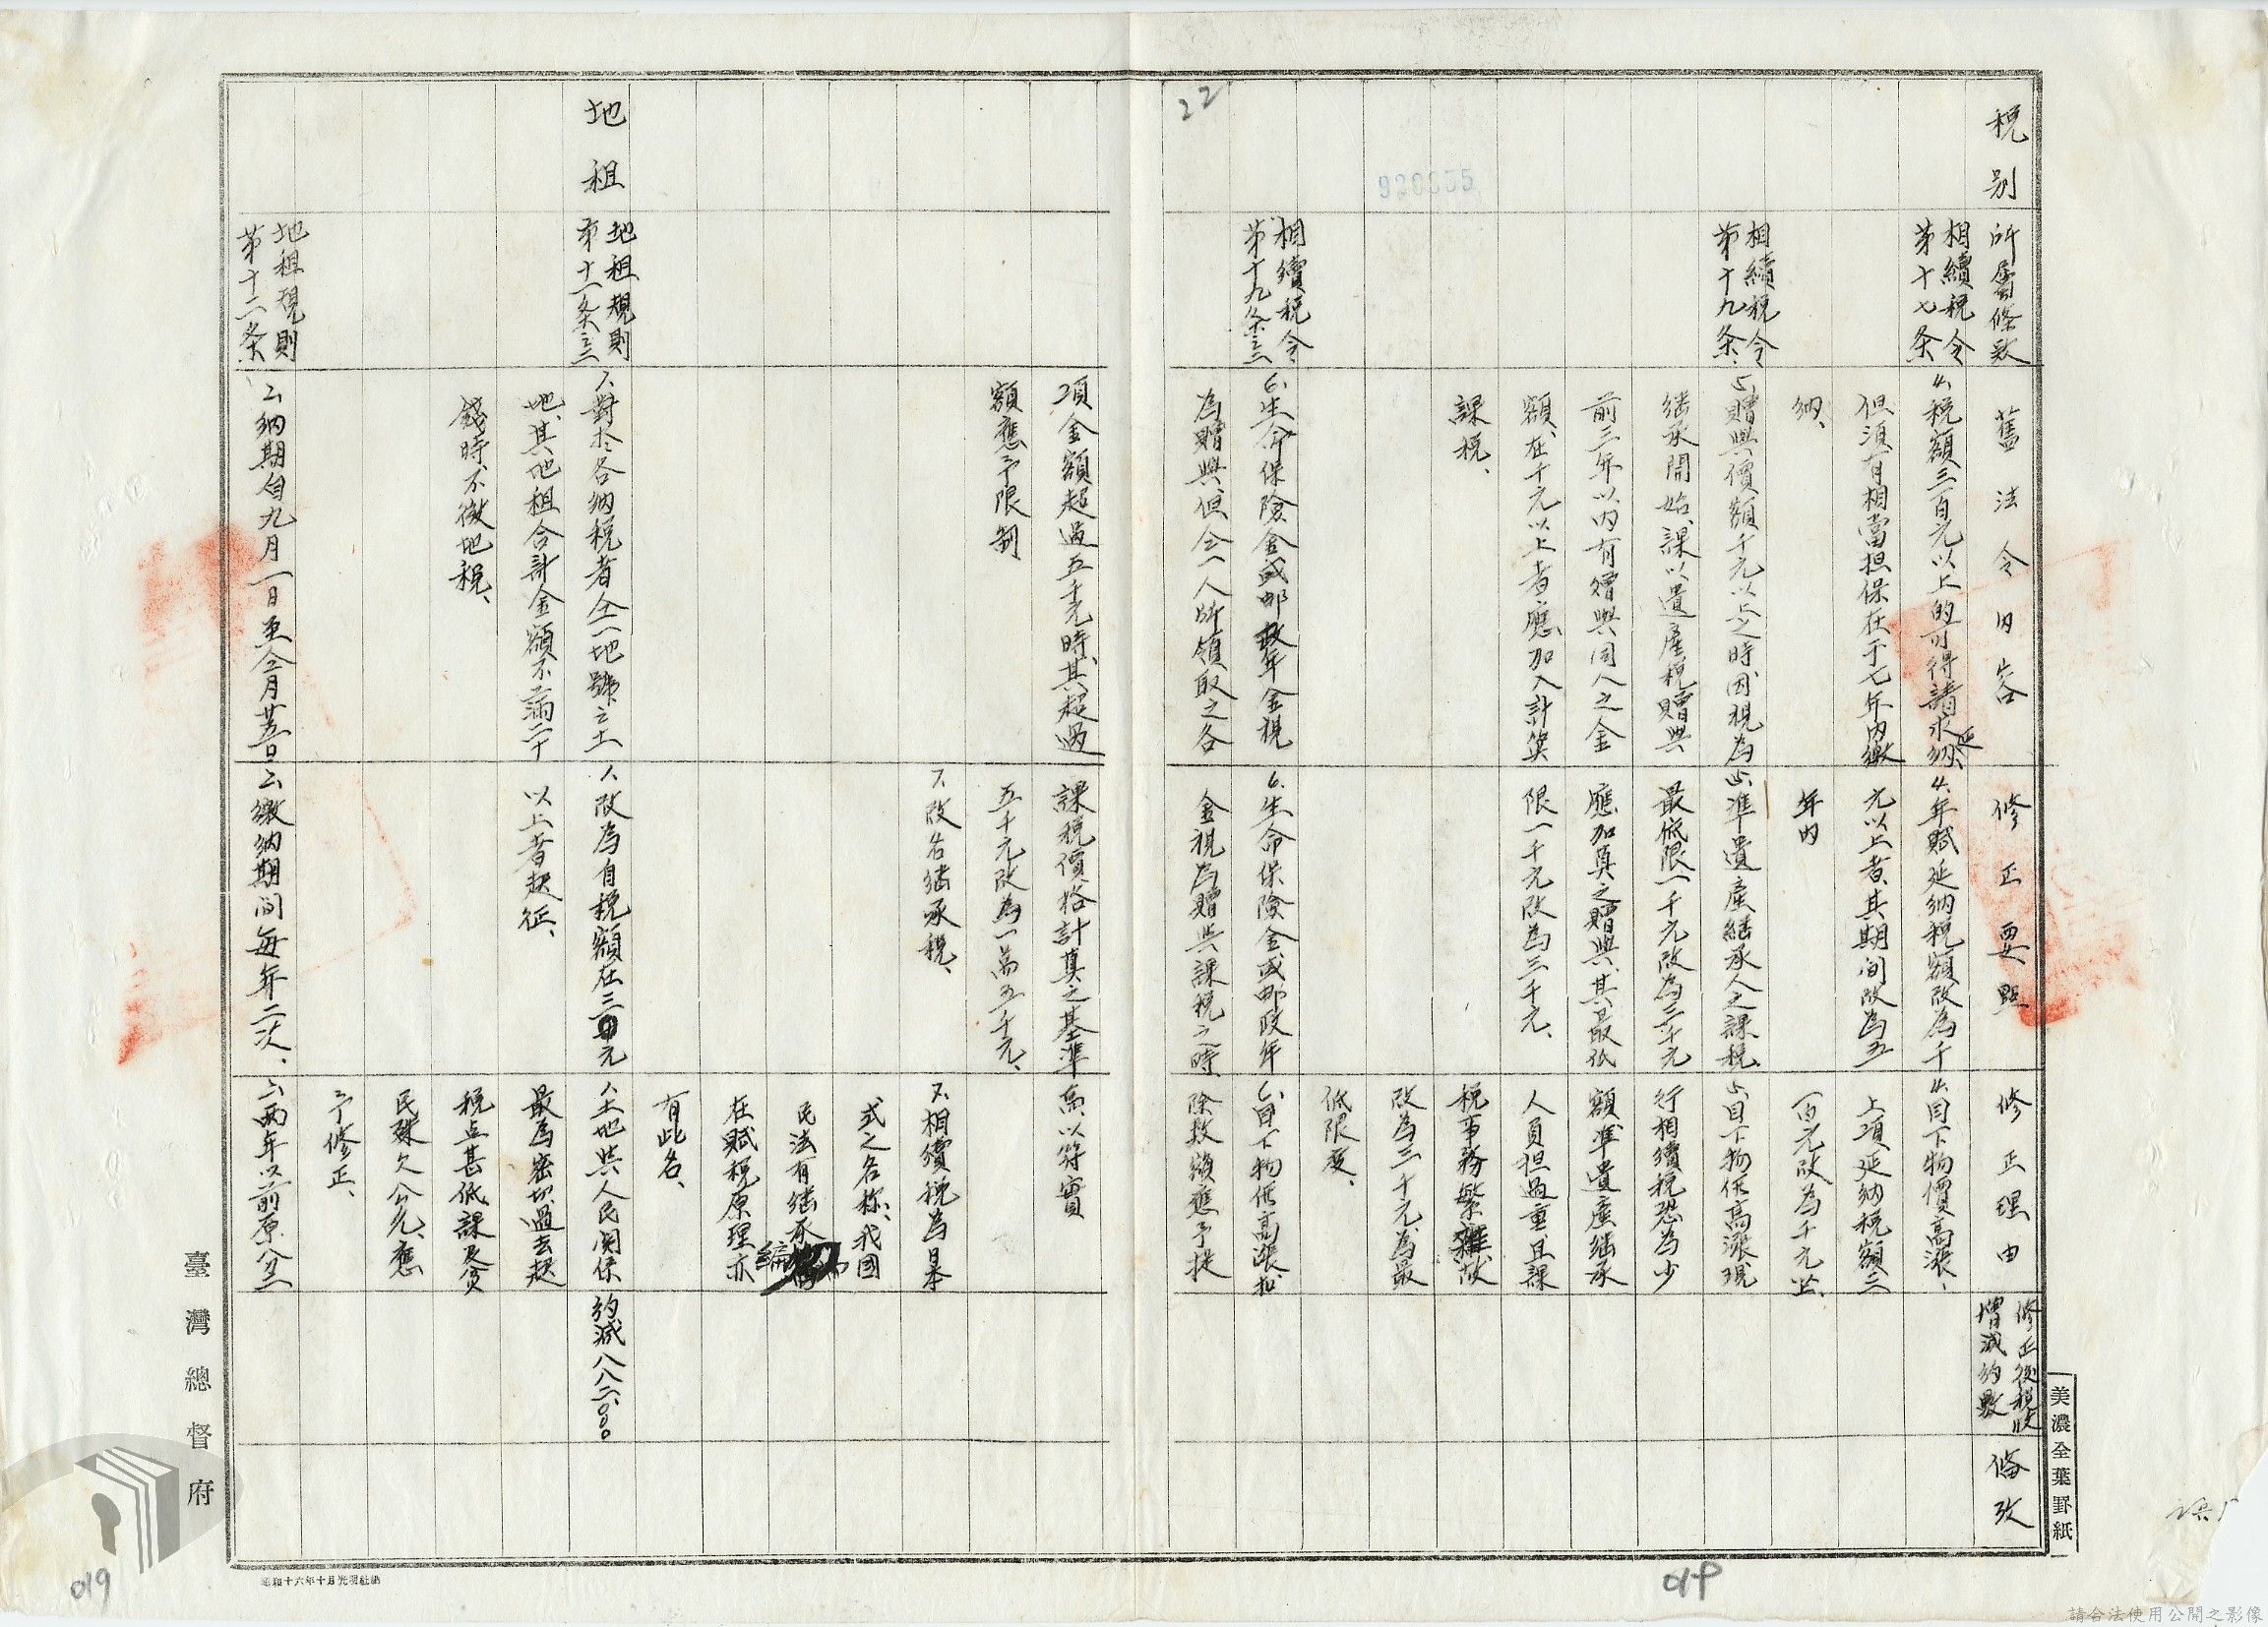 稅別
所屬條款
舊法令內容
修正要點
修正理由
修正後稅收
增減約數
備攷
相續稅令
第十七条
4.稅額三百元以上的可得請求延納、
但須有相當担保在于七年內繳
納、
4.年賦延納稅額改為千
元以上者、其期间改為五
年內
4.目下物價高漲、
上項延納稅額三
百元改為千元以上、
相續稅令
第十九条
5.贈與價額千元以上之時因視為
繼承開始、課以遺產稅贈與
前三年以內有贈與同人之金
額、在千元以上者應加入計算
課稅、
5.準遺產繼承人之課稅
最低限一千元改為三千元
應加算之贈與、其最低
限一千元改為三千元、
5.目下物価高漲現
行相續稅恐為少
額、準遺產繼承
人員担過重、且課
稅事務繁雜故
改為三千元、為最
低限度、
22
相續稅令
第十九条之三
6.生命保險金或郵政年金視
為贈與、但仝一人所領取之各
項金額超過五千元時、其超過
額應予限制
6.生命保險金或郵政年
金視為贈與課稅之時、
課稅價格計算之基準
五千元改為一萬五千元、
6.目下物価高漲扣
除數額應予提
高、以符實
7.改名繼承稅、
7.相續稅為日本
式之名称、我國
民法有繼承編
在賦稅原理亦
有此名、
地租
地租規則
第十一条之三
1.對於各納稅者仝一地號之土
地、其地租合計金額不滿二十
錢時、不徵地稅、
1.改為自稅額在三元
以上者起征、
1.土地與人民関係
最為密切、過去起
稅点甚低課及貧
民殊欠公允、應
予修正、
約減八八二、〇〇〇
地租規則
第十二条
2.納期自九月一日至仝月廿五日
2.繳納期间每年二次、
2.兩年以前原分
臺灣總督府
美濃全葉罫紙
昭和十六年十月光明社納
019
019
請合法使用公開之影像